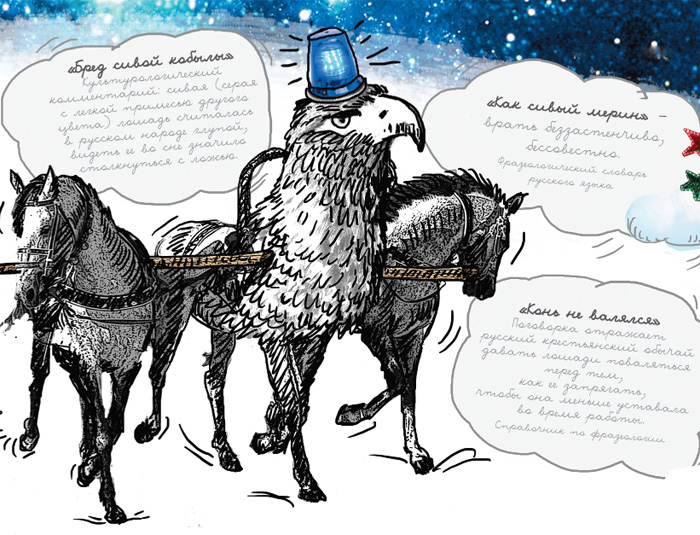 «Бред сивой кобылы»
Культурологический
комментарий: сивая (серая
с легкой примесью другого
цвета) лошадь считалась
в русском народе глупой,
видеть ее во сне значило
столкнуться с ложью.
«Как сивый мерин» –
врать беззастенчиво,
бессовестно.
Фразиологический словарь
русского языка
«Конь не валялся»
Поговорка отражает
русский крестьянский обычай
давать лошади поваляться
перед тем,
как ее запрягать,
чтобы она меньше уставала
во время работы.
Справочник по фразиологии